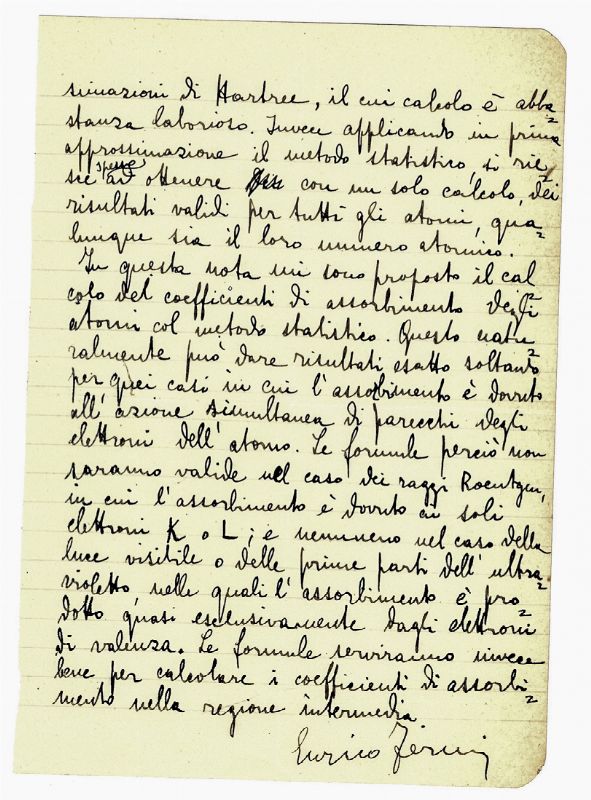 simazioni di Hartree, il cui calcolo è abba=
stanza laborioso. Invece applicando in prima
approssimazione il metodo statistico, si rie
spesso
sce ad ottenere con un solo calcolo, dei
risultati validi per tutti gli atomi, qua=
lunque sia il loro numero atomico.
In questa nota mi sono proposto il cal=
colo dei coefficienti di assorbimento degli
atomi col metodo statistico. Questo natu=
ralmente può dare risultati esatto soltanto
per quei casi in cui l'assorbimento è dovuto
all'azione simultanea di parecchi degli
elettroni dell'atomo. Le formule perciò non
saranno valide nel caso dei raggi Roentgen,
in cui l'assorbimento è dovuto ai soli
elettroni K o L; e nemmeno nel caso della
luce visibile o delle prime parti dell'ultra=
violetto, nelle quali l'assorbimento è pro=
dotto quasi esclusivamente dagli elettroni
di valenza. Le formule serviranno invece
bene per calcolare i coefficienti di assorbi=
mento nella regione intermedia
Enrico Fermi